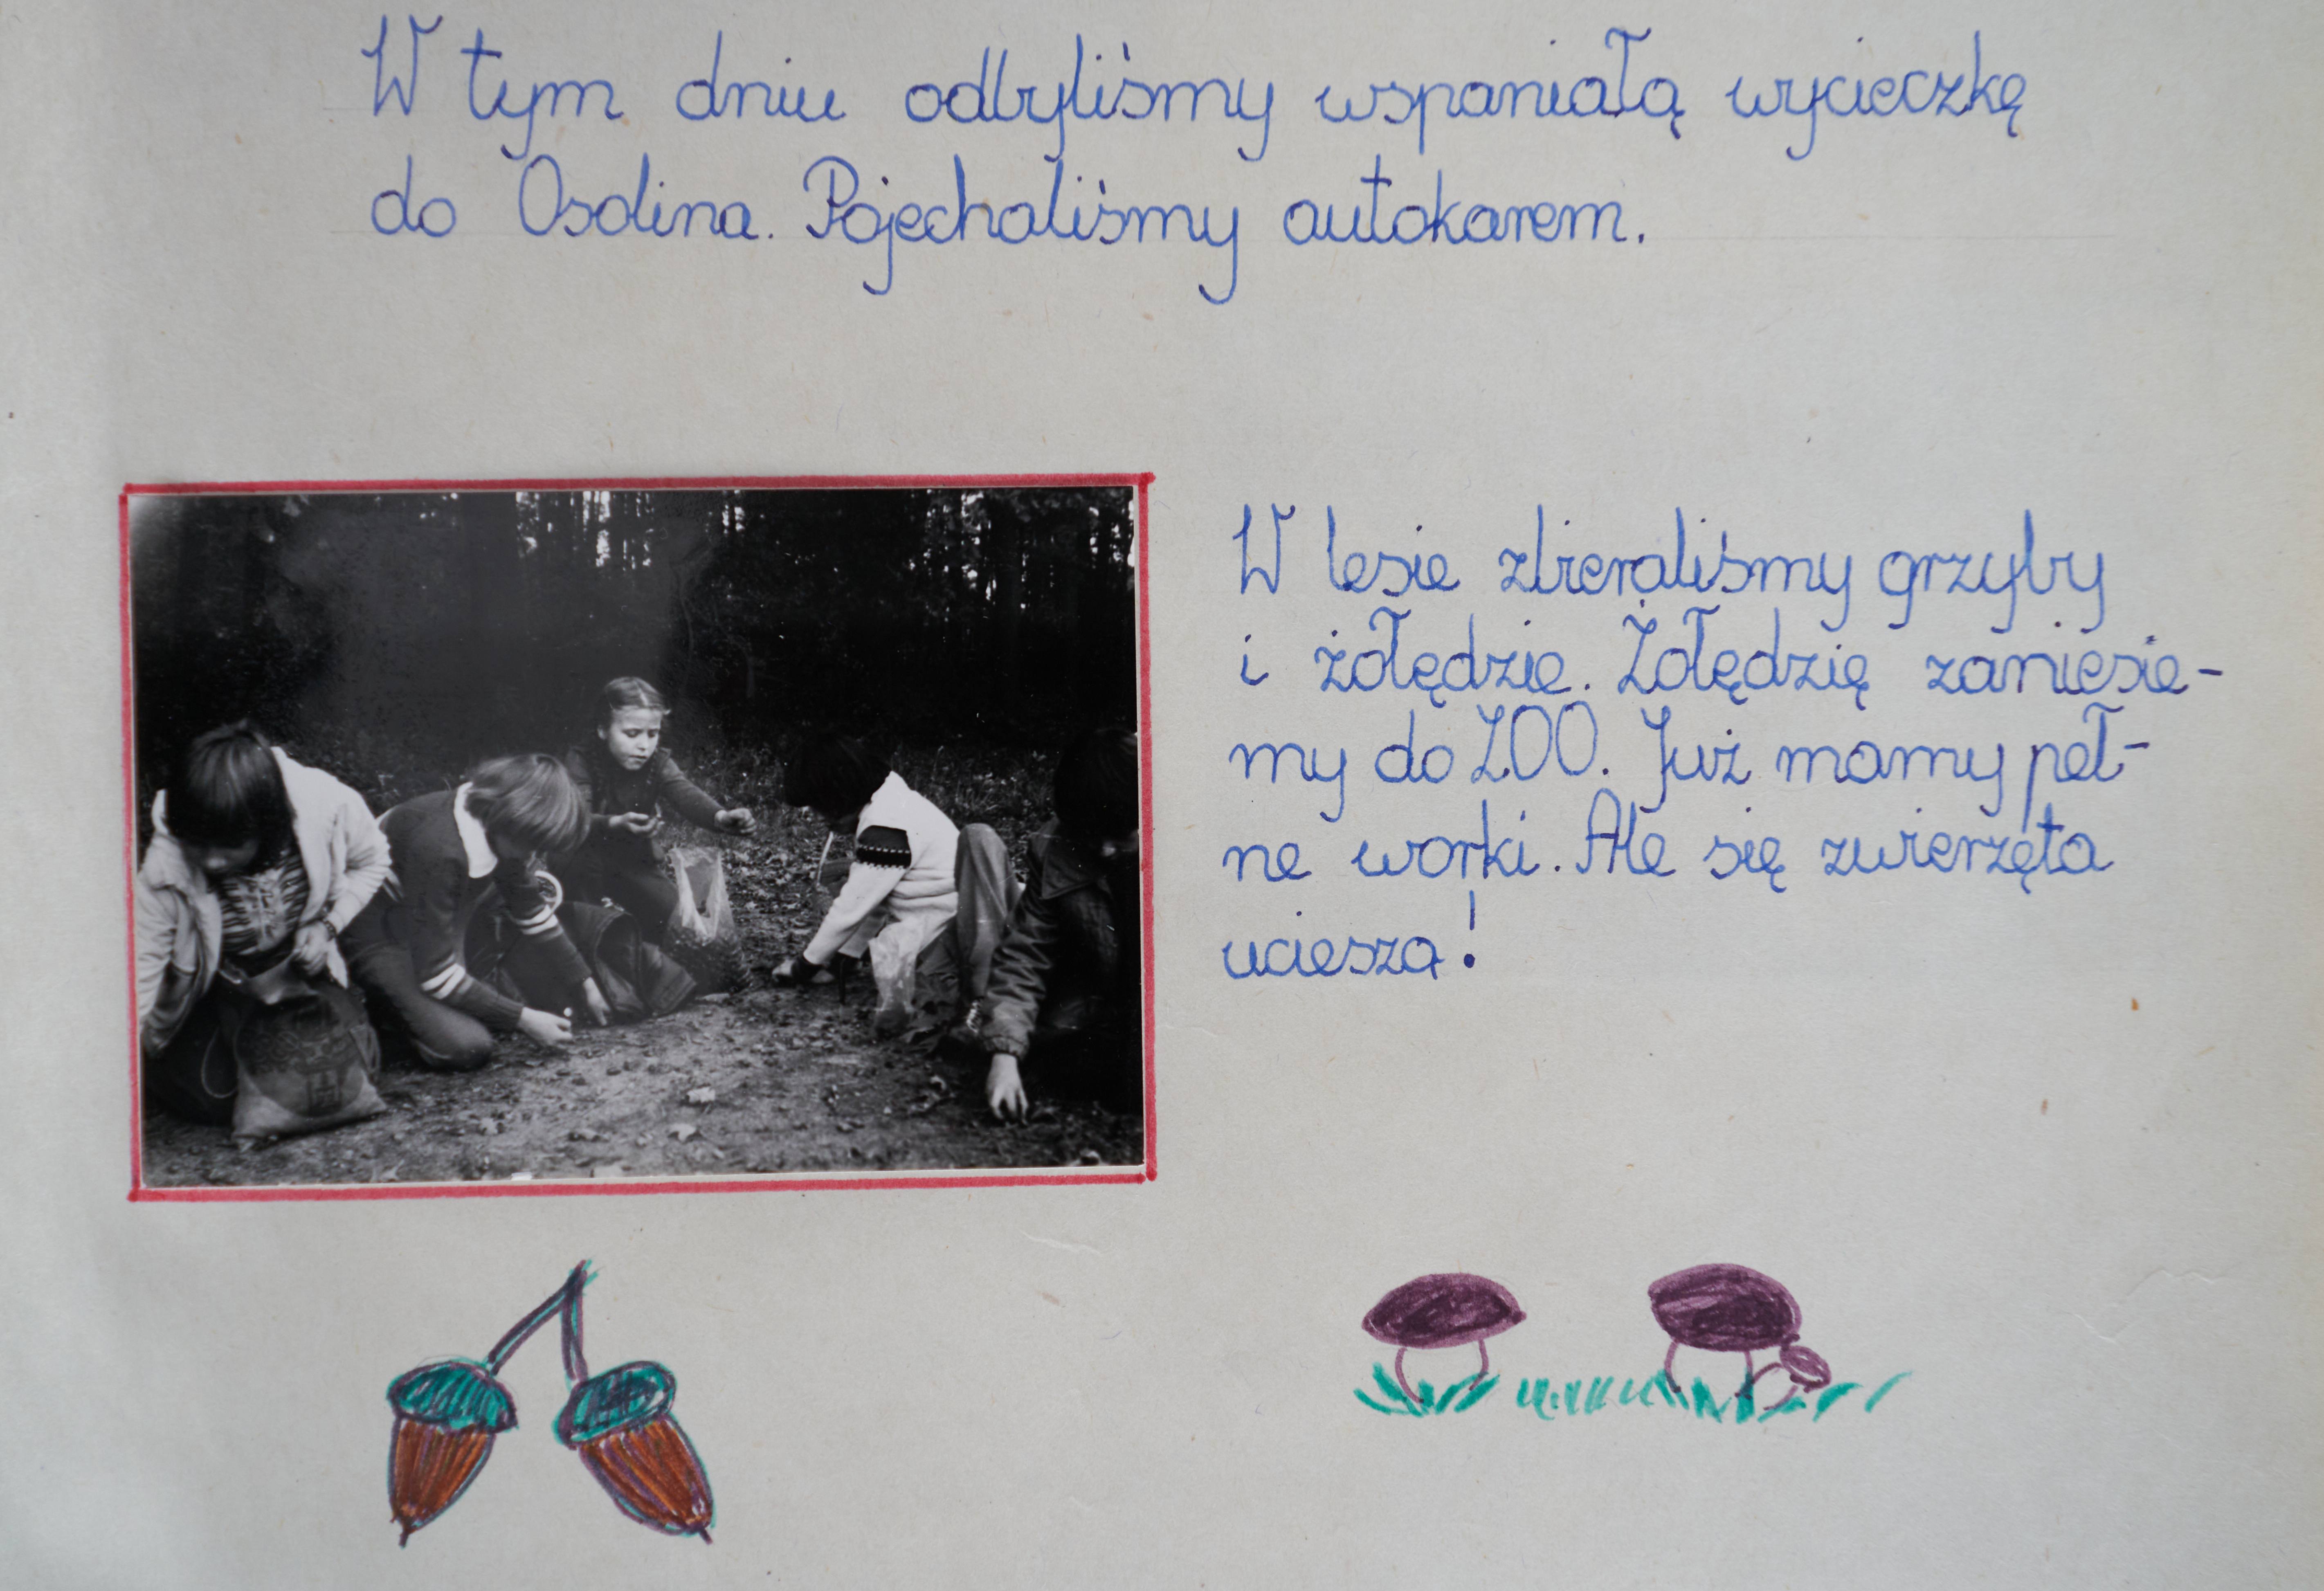 W tym dniu odbyliśmy wspaniałą wycieczkę
do Osolina. Pojechaliśmy autokarem.
W lesie zbieraliśmy grzyby
i żołędzie. Żołędzię zaniesie-
my do ZOO. Już mamy peł-
ne worki. Ale się zwierzęta
ucieszą!